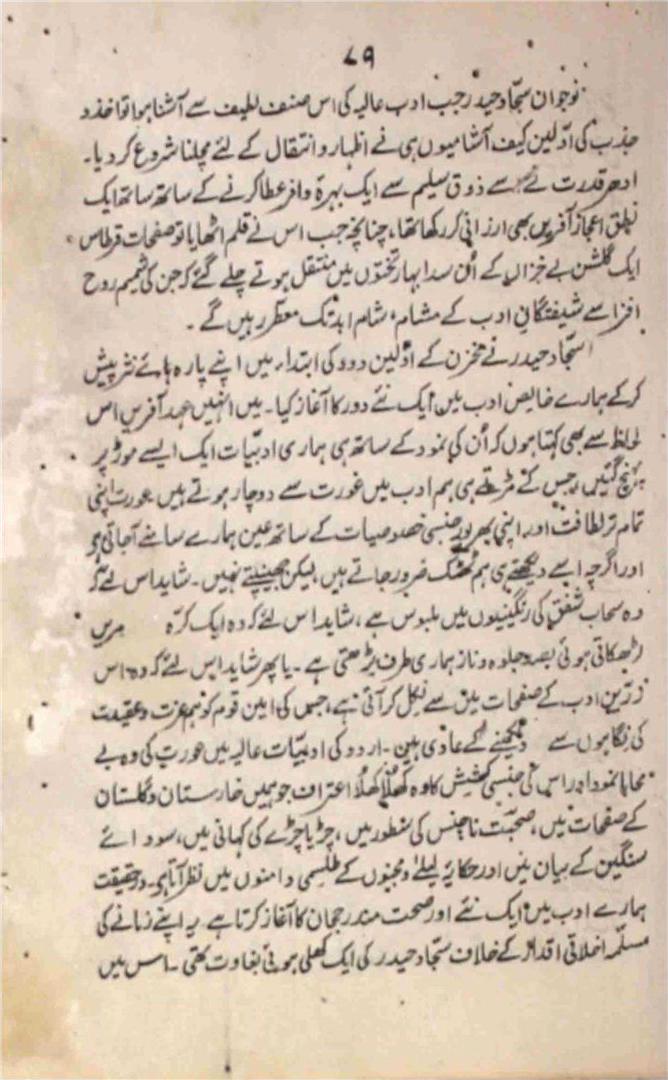 ۷۹
نوجوان سجّاد حیدر جب ادب عالیہ کی اس صنف لطیف سے آشنا ہوا تو اخذ و
جذب کی اوّلین کیف آشامیوں ہی نے اظہار و انتقال کے لئے مچلنا شروع کر دیا۔
ادھر قدرت نے اسے ذوق سلیم سے ایک بہرۂ وافر عطا کرنے کے ساتھ ساتھ ایک
نطق اعجاز آفریں بھی ارزانی کر رکھا تھا، چنانچہ جب اس نے قلم اٹھایا تو صفحات قرطاس
ایک گلشن بے خزاں کے اُن سدا بہار تختوں میں منتقل ہوتے چلے گئے کہ جن کی شمیم روح
افزا سے شیفتگانِ ادب کے مشام، شام ابد تک معطّر رہیں گے۔
سجّاد حیدر نے مخزن کے اوّلین دور کی ابتداء میں اپنے پارہ ہائے نثر پیش
کر کے ہمارے خالص ادب میں ایک نئے دور کا آغاز کیا۔ میں انہیں عہد آفریں اس
لحاظ سے بھی کہتا ہوں کہ اُن کی نمود کے ساتھ ہی ہماری ادبیّات ایک ایسے موڑ پر
پہنچ گئیں، جس کے مڑتے ہی ہم ادب میں عورت سے دوچار ہوتے ہیں۔ عورت اپنی
تمام تر لطافت اور اپنی بھرپور جنسی خصوصیات کے ساتھ عین ہمارے سامنے آجاتی ہو
اور اگرچہ اسے دیکھتے ہی ہم ٹھٹک ضرور جاتے ہیں، لیکن جھینپتے نہیں۔ شاید اس لئے کہ
وہ سحاب شفق کی رنگینیوں میں ملبوس ہے، شاید اس لئے کہ وہ ایک کرّہ مریں
لڑھکاتی ہوئی بصد جلوہ و ناز ہماری طرف بڑھتی ہے۔ یا پھر شاید اس لئے کہ وہ اس
زرّین ادب کے صفحات میں سے نکل کر آتی ہے، جس کی امین قوم کو ہم عزت و عقیدت
کی نگاہوں سے دیکھنے کے عادی ہیں۔ اردو کی ادبیّات عالیہ میں عورت کی وہ بے
محابا نمود اور اس کی جنسی کشش کا وہ کھُلّم کھُلّا اعتراف جو ہمیں خارستان و گلستان
کے صفحات میں، صحبت ناجنس کی سطور میں، چڑیا چڑے کی کہانی میں، سودائے
سنگین کے بیان میں اور حکایۂ لیلےٰ و مجنوں کے طلسمی دامنوں میں نظر آتا ہو۔ درحقیقت
ہمارے ادب میں ایک نئے اور صحت مند رجحان کا آغاز کرتا ہے۔ یہ اپنے زمانے کی
مسلّمہ اخلاقی اقدار کے خلاف سجّاد حیدر کی ایک کھلی ہوئی بغاوت تھی۔ اس میں